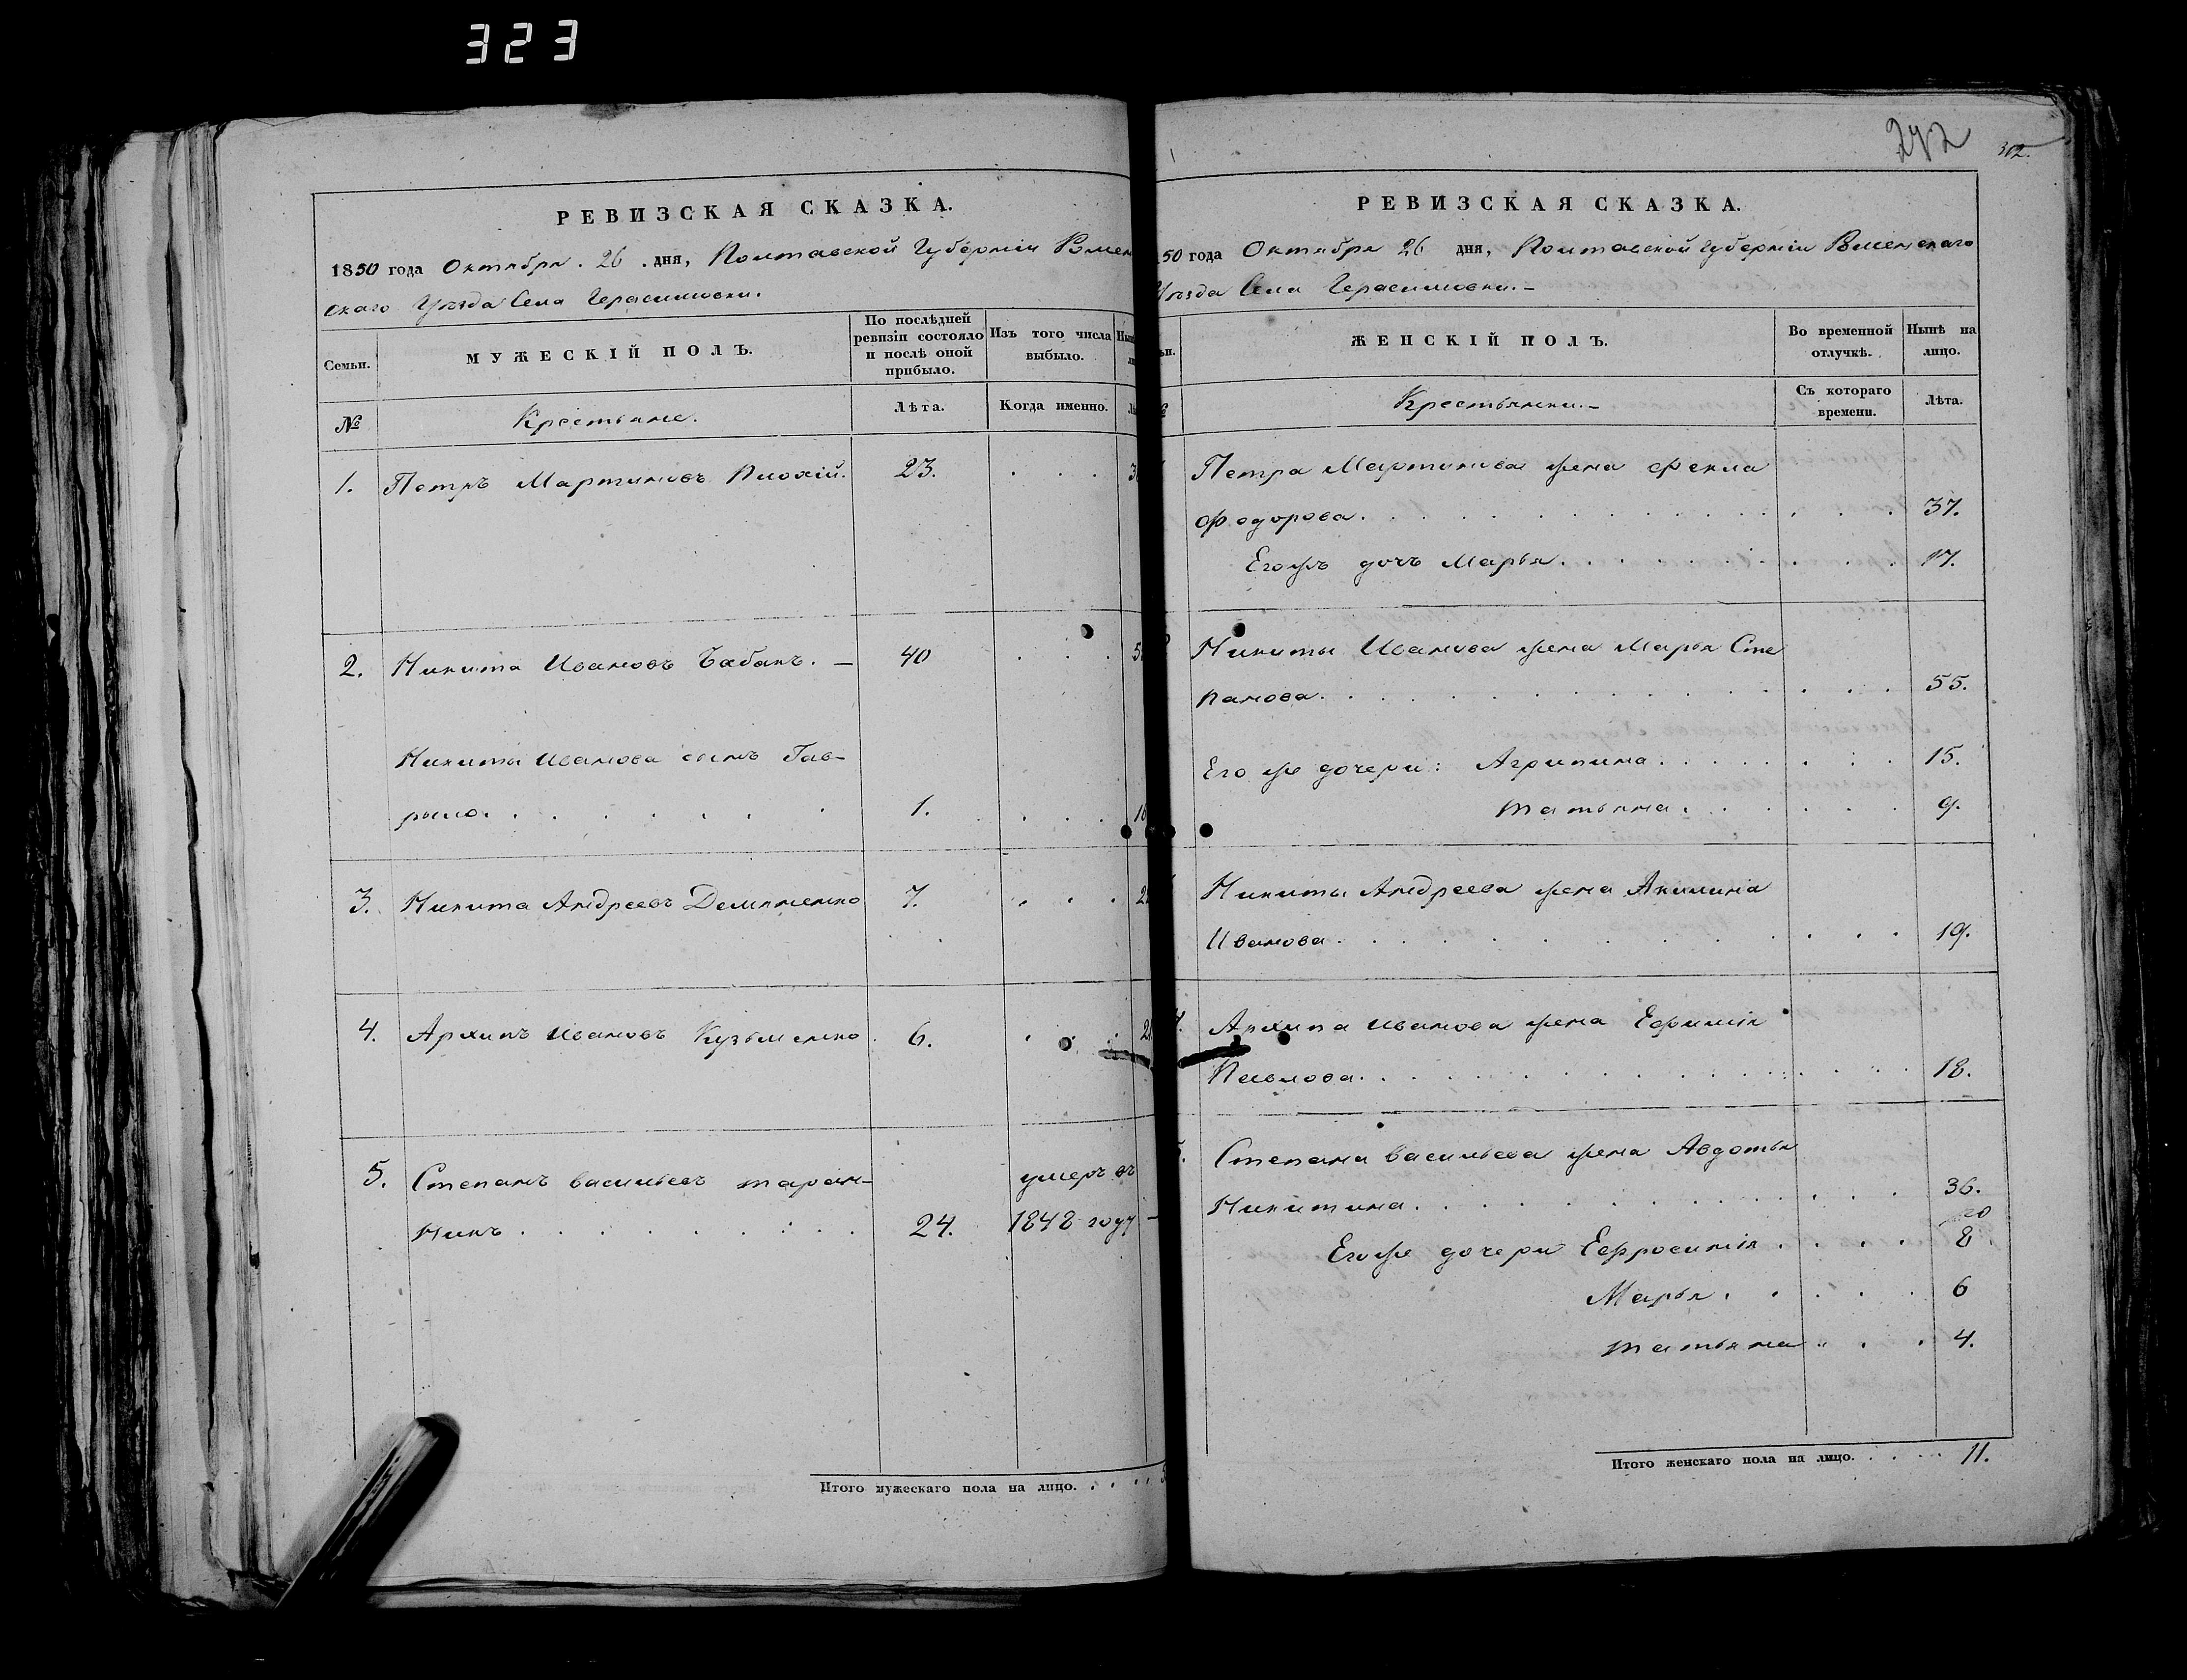 323
РЕВИЗСКАЯ СКАЗКА.
1850 года Октября. 26 .дня, Полтавской Губерніи Ромен
скаго Уѣзда Села Герасимовки.
Семьи.
МУЖЕСКІЙ ПОЛЪ.
По послѣдней
ревизіи состояло
и послѣ оной
прибыло.
Изъ того числа
выбыло.
№
Крестьяне.
Лѣта.
Когда именно.
1. Петръ Мартиновъ Плохій. 23.
2. Никита Ивановъ Бабакъ. — 40
Никиты Иванова сынъ Гав-
рыло. 1.
3. Никита Андреевъ Демяненко 7.
4. Архипъ Ивановъ Кузьменко 6.
5. Степанъ Васильевъ Таран- умеръ въ
никъ 24. 1848 году
Итого мужескаго пола на лицо.
292
302.
РЕВИЗСКАЯ СКАЗКА.
50 года Октября 26 дня, Полтавской Губерніи Роменскаго
Уѣзда Села Герасимовки.—
ЖЕНСКІЙ ПОЛЪ.
Во временной
отлучкѣ.
Нынѣ на
лицо.
Крестьянки.—
Съ котораго
времени.
Лѣта.
Петра Мартинова жена Фекла
Федорова. 37.
Егожъ дочь Марья. 17.
Никиты Иванова жена Марья Сте
панова. 55.
Его же дочери: Агрипина. 15.
Татьяна. 9.
Никиты Андреева жена Акилина
Иванова. 19.
Архипа Иванова жена Ефимія
Павлова. 18.
Степана Васильева жена Авдотья
Никитина. 36.
Егоже дочери Ефросинія 8
Марья. 6
Татьяна 4.
Итого женскаго пола на лицо. 11.